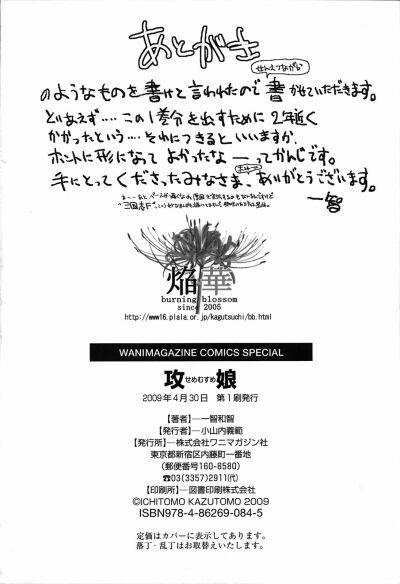 あとがき
せんえつながら
のようなものを書けと言われたので書かせていただきます。
とりあえず‥‥この1巻分を出すために2年近く
かかったという‥‥それにつきるといいますか、
ホントに形になってよかったなーーってかんじです。
手にとってくださったみなさま、ありがとうございます。
一智
焔華
burning blossom
since 2005
http://www16.plala.or.jp/kagutsuchi/bb.html
WANIMAGAZINE COMICS SPECIAL
攻娘
せめむすめ
2009年4月30日 第1刷発行
【著者】―一智和智
【発行者】―小山内義範
【発行所】―株式会社ワニマガジン社
東京都新宿区内藤町一一番地
(郵便番号160-8580)
☎03(3357)2911(代)
【印刷所】―図書印刷株式会社
©ICHITOMO KAZUTOMO 2009
ISBN978-4-86269-084-5
定価はカバーに表示してあります。
落丁・乱丁はお取替えいたします。